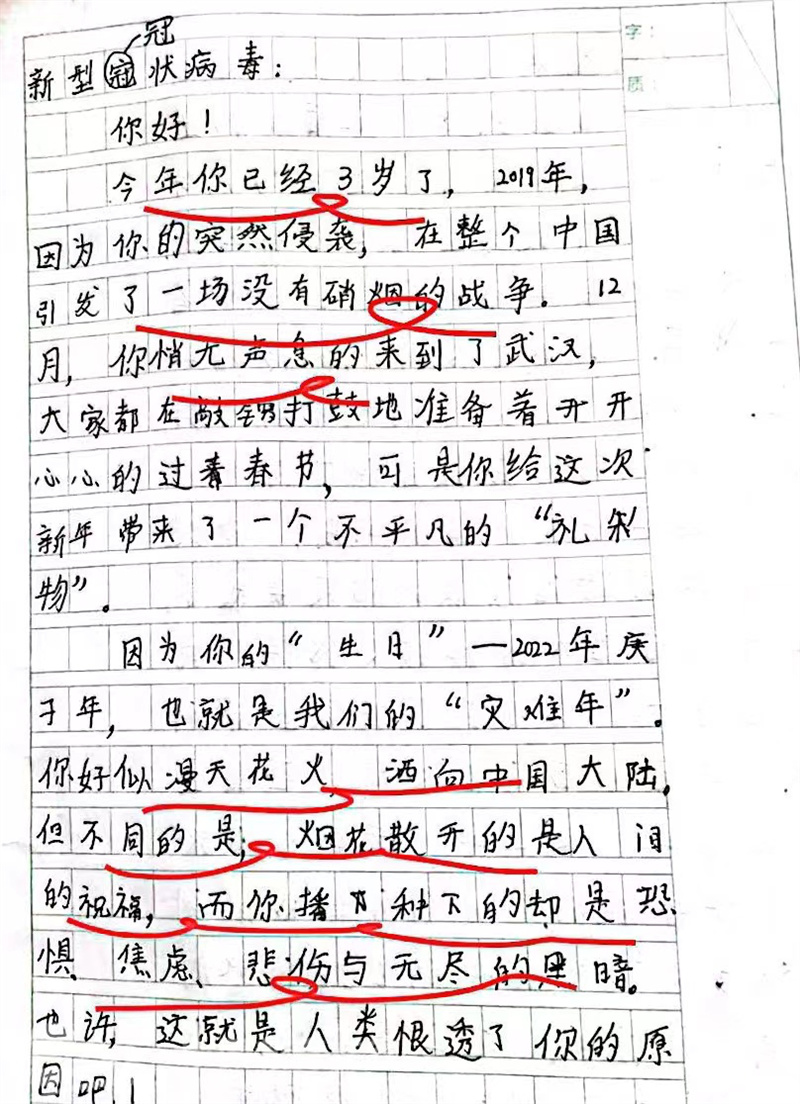 冠
字:
新型冠状病毒:
质:
你好!
今年你已经3岁了,2019年,
因为你的突然侵袭,在整个中国
引发了一场没有硝烟的战争。12
月,你悄无声息的来到了武汉,
大家都在敲锣打鼓地准备着开开
心心的过着春节,可是你给这次
新年带来了一个不平凡的“礼
物”。
因为你的“生日”—2022年庚
子年,也就是我们的“灾难年”。
你好似漫天花火,洒向中国大陆,
但不同的是;烟花散开的是人间
的祝福,而你播种下的却是恐
惧、焦虑、悲伤与无尽的黑暗。
也许,这就是人类恨透了你的原
因吧!